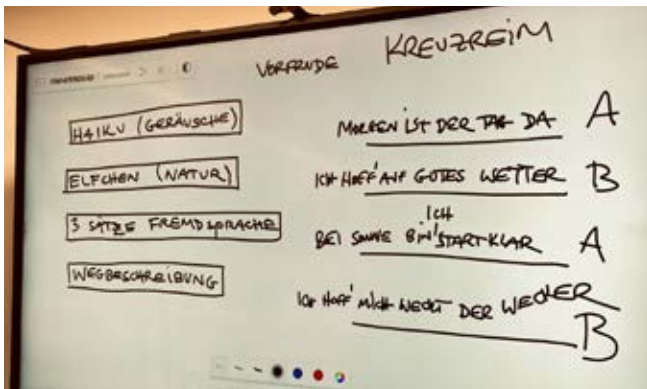 VORFREUDE
KREUZREIM
HAIKU (GERÄUSCHE)
ELFCHEN (NATUR)
3 SÄTZE FREMDSPRACHE
WEGBESCHREIBUNG
MORGEN IST DER TAG DA A
ICH HOFF' AUF GUTES WETTER B
ICH
BEI SONNE BIN STARTKLAR A
ICH HOFF' MICH WECKT DER WECKER
B